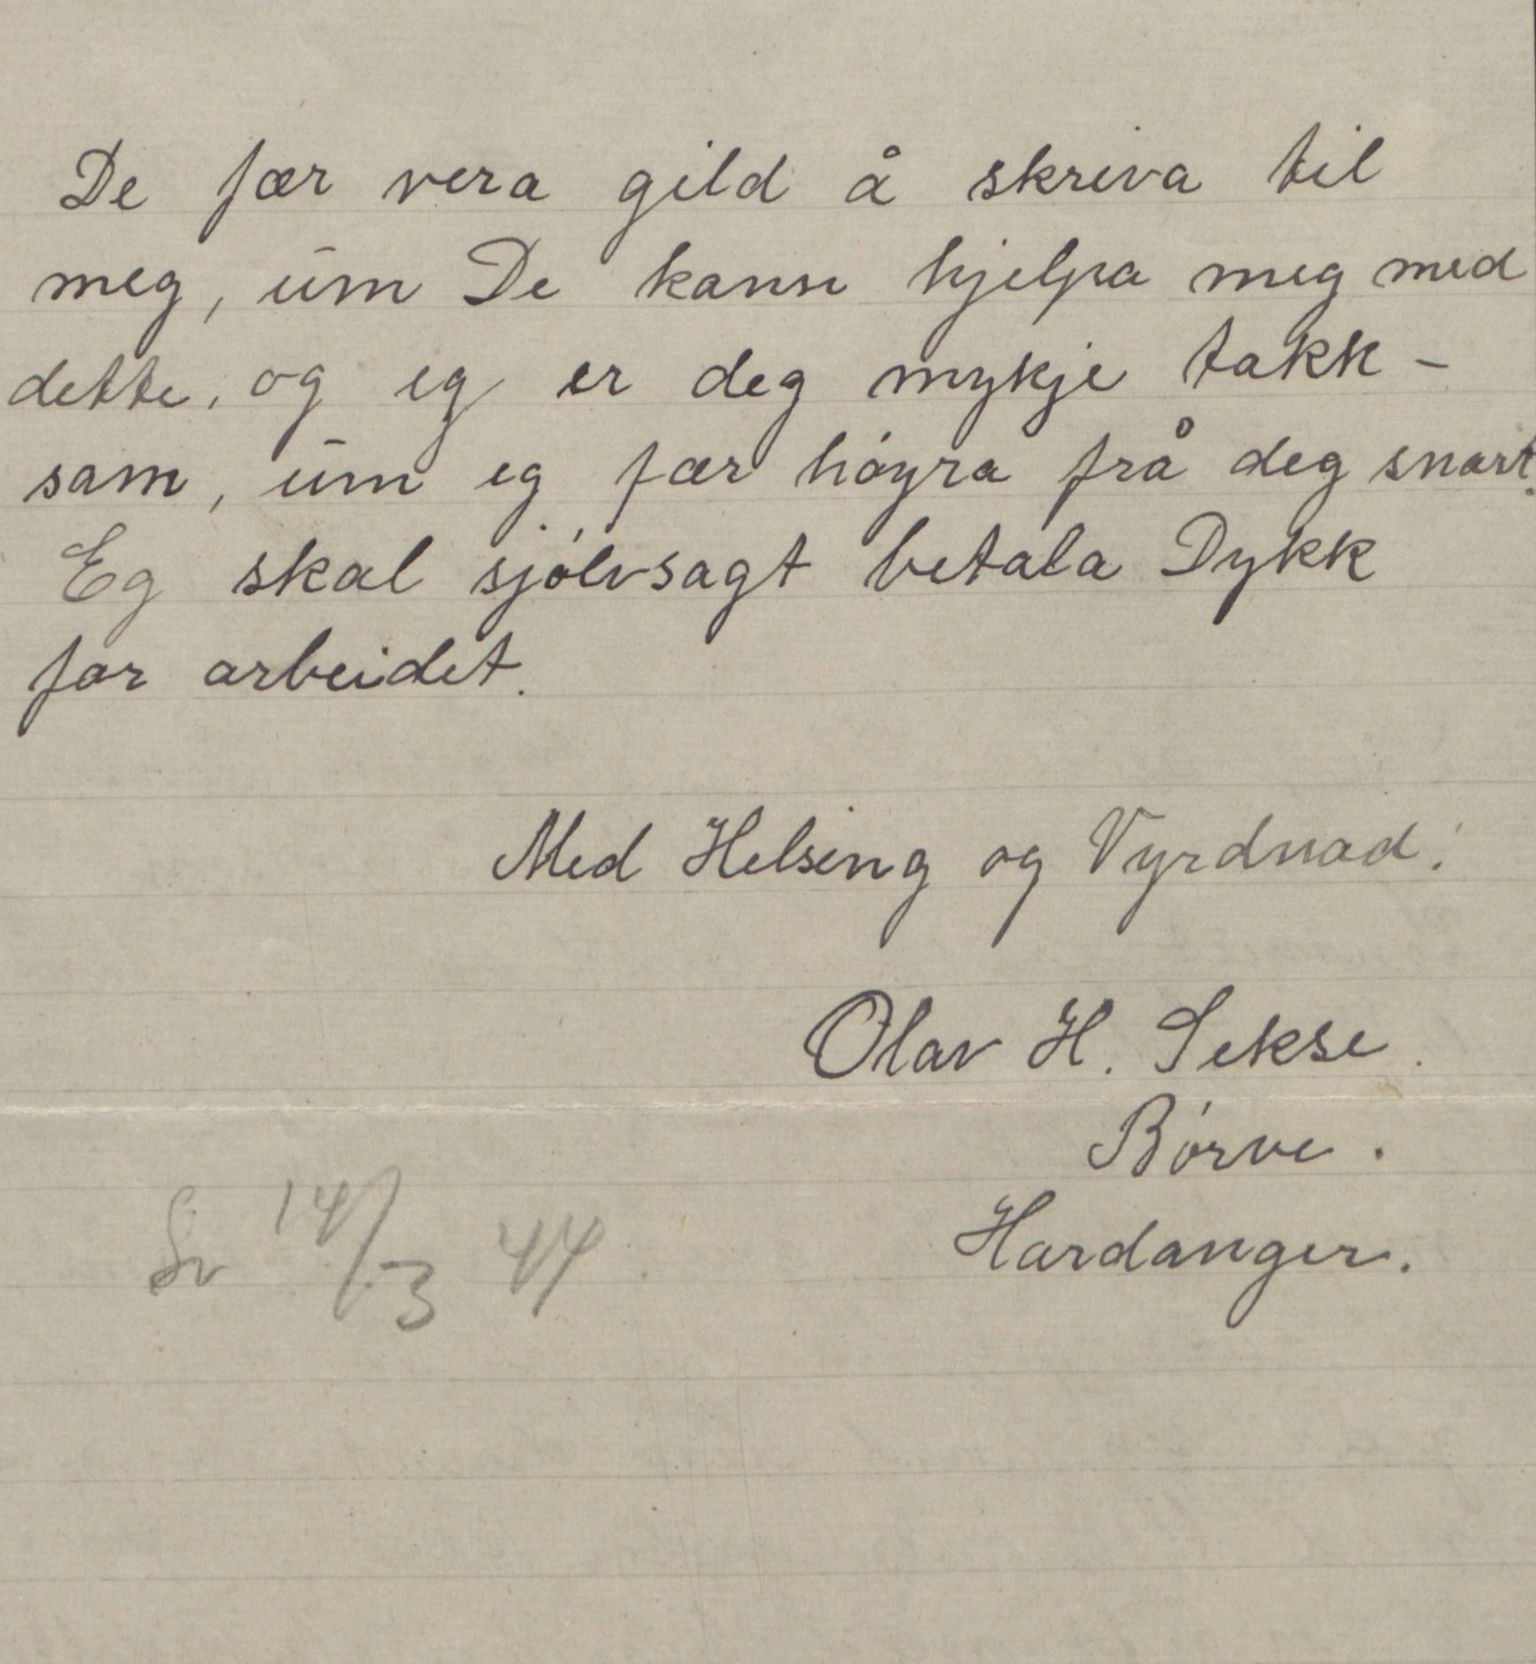 De fær vera gild å skriva til
meg, um De kann hjelpa meg med
dette, og eg er deg mykje takk-
sam, um eg fær høyra frå deg snart.
Eg skal sjølvsagt betala Dykk
for arbeidet.
Med Helsing og Vyrdnad!
Olav H. Sekse.
Børve.
Hardanger.
Sv 14/3 44.